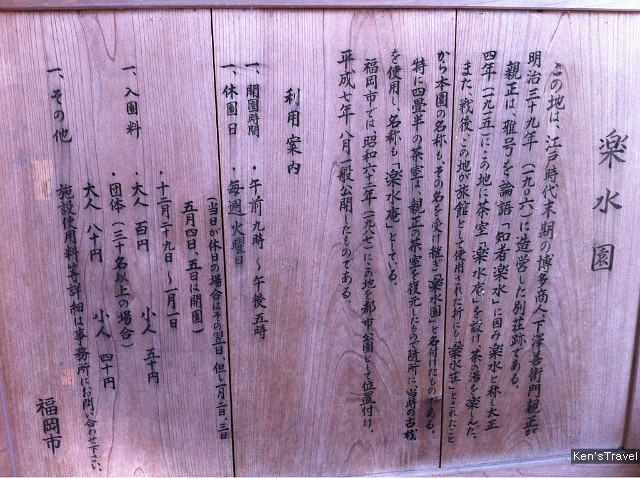 楽水園
この地は、江戸時代末期の博多商人「下澤善右衛門親正」が
明治三十九年(一九〇六)に造営した別荘跡である。
親正は、雅号を論語「知者楽水」に因み楽水と称し大正
四年(一九一五)にこの地に茶室「楽水庵」を設け、茶の湯を楽しんだ。
また、戦後、この地が旅館として使用された折にも「楽水荘」とされたこと
から本園の名称も、その名を受け継ぎ「楽水園」と名付けたものである。
特に四畳半の茶室は、親正の茶室を復元したもので随所に、当時の古材
を使用し、名称も「楽水庵」としている。
福岡市では、昭和六十二年(一九八七)にこの地を都市公園として位置付け、
平成七年八月一般公開したものである。
利用案内
一、開園時間 ・午前九時〜午後五時
一、休園日 ・毎週火曜日
(当日が休日の場合はその翌日、但し一月二日、三日
五月四日、五日は開園)
・十二月二十九日〜一月一日
一、入園料 ・大人 百円 小人 五十円
・団体(三十名以上の場合)
大人 八十円 小人 四十円
一、その他 施設使用料等詳細は事務所にお問い合わせ下さい。
福岡市
Ken'sTravel